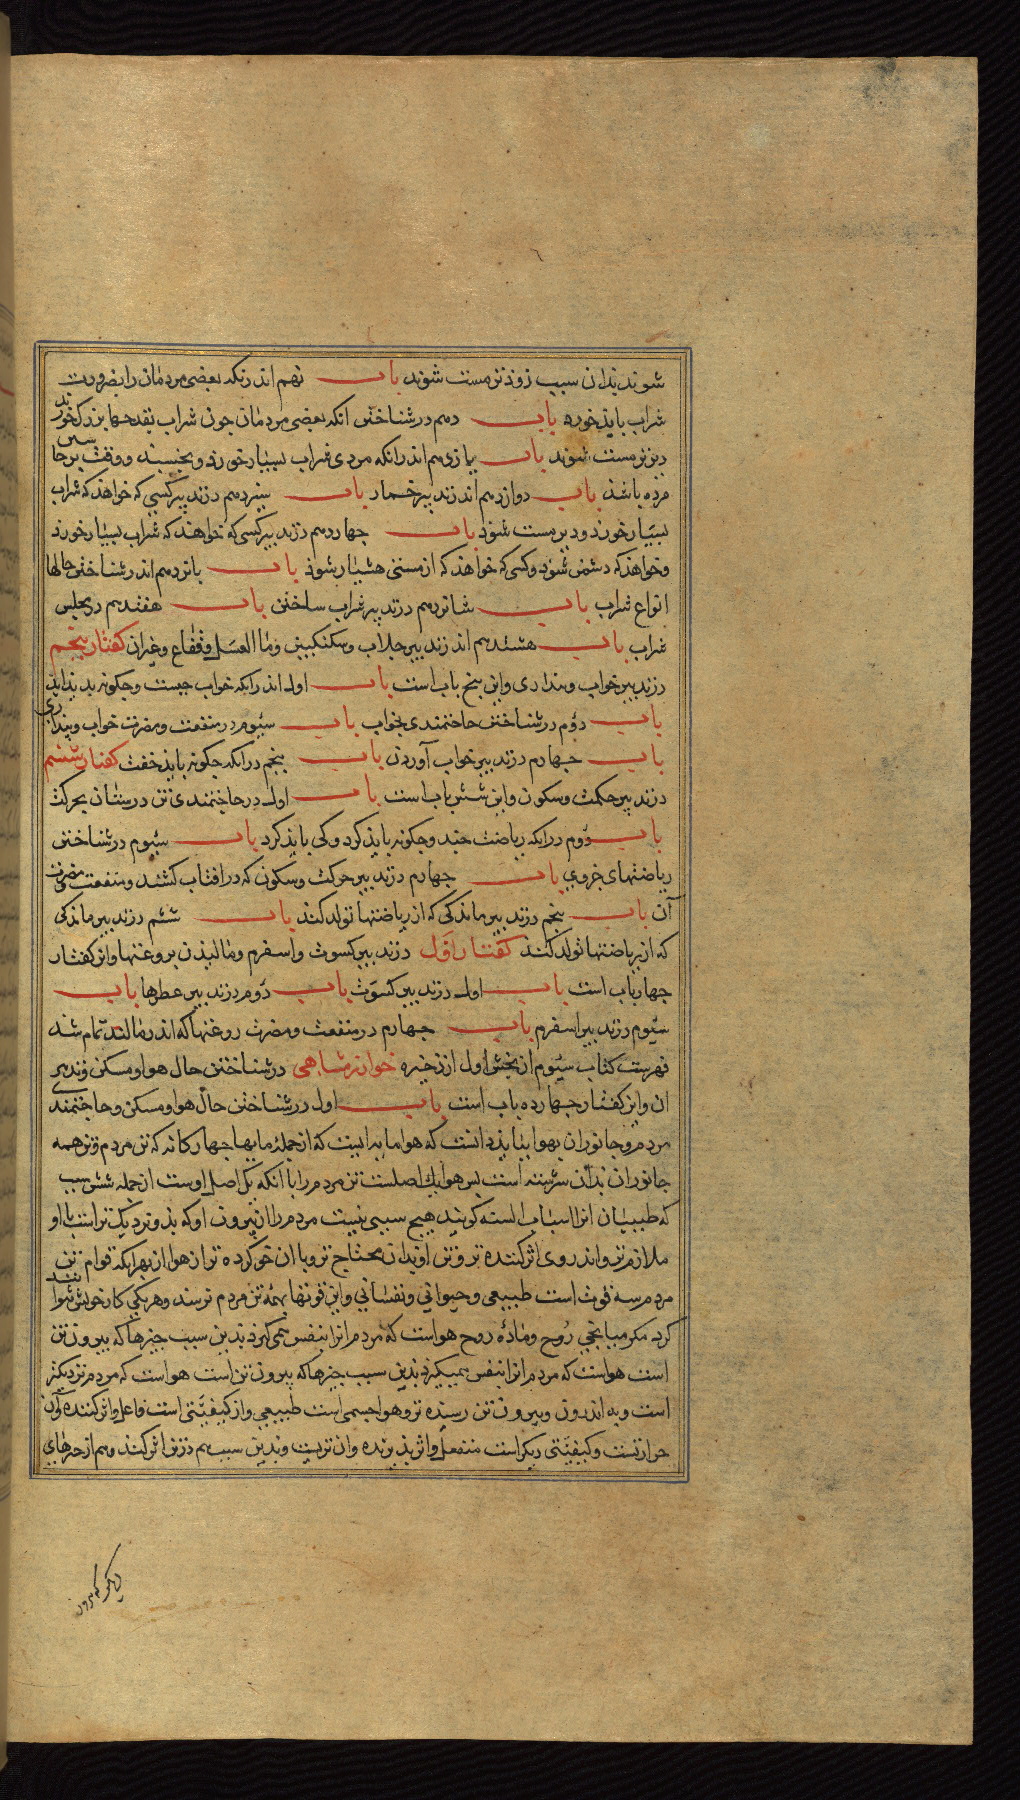 شوند بدان سبب زودتر مست شوند باب نهم اندر آنکه بعضی مردمان را بضرورت
شراب باید خورد باب دهم در شناختن آنکه بعضی مردمان چون شراب بقدحها بزرک خورند
دیرتر مست شوند باب یازدهم اندر آنکه مردی شراب بسیار خورد و بخسبد و وقت بر جا
مرده باشد باب دوازدهم اندر تدبیر خمار باب سیزدهم در تدبیر کسی که خواهد که شراب
بسیار خورد و دیر مست شود باب چهاردهم در تدبیر کسی که خواهد که شراب بسیار خورد
و خواهد که دشمن شود و کسی که خواهد که از مستی هشیار شود باب پانزدهم اندر شناختن حالها
انواع شراب باب شانزدهم در تدبیر شراب ساختن باب هفتدهم در مجلس
شراب باب هشتدهم اندر تدبیر جلاب و سکنکبین و ماالعسل و فقاع و غیران کفتار پنجم
در تدبیر خواب و بیداری و این پنج باب است باب اول اندر آنکه خواب چیست و چکونه پدید اید
باب دوم در شناختن حاجتمندی بخواب باب سیوم در منفعت و مضرت خواب و بیداری
باب چهارم در تدبیر خواب آوردن باب پنجم در انکه چکونه باید خفت کفتار ششم
در تدبیر حرکت و سکون و این شش باب است باب اول در حاجتمندی تن درستان بحرکت
باب دوم در انکه ریاضت چند و چکونه باید کرد و کی باید کرد باب سیوم در شناختن
ریاضتهای جزوی باب چهارم در تدبیر حرکت و سکون که در افتاب کنند و منفعت و مضرت
آن باب پنجم در تدبیر ماندکی که از ریاضتها تولد کند باب ششم در تدبیر ماندکی
که از ریاضتها تولد کند کفتار اول در تدبیر کسوت و اسفرم و مالیدن بروغنها و این کفتار
چهار باب است باب اول در تدبیر کسوت باب دوم در تدبیر عطرها باب
سیوم در تدبیر اسفرم باب چهارم در منفعت و مضرت روغنها که اندر مالند تمام شد
فهرست کتاب سیوم از بخش اول از ذخیره خوارزمشاهی در شناختن حال هوا و مسکن و تدبیر
ان و این کفتار چهارده باب است باب اول در شناختن حال هوا و مسکن و حاجتمندی
مردم و جانوران بهوا بباید دانست که هوا مایه ایست که از جمله مایها چهارکانه که تن مردم و تن همه
جانوران بدان سرشته است پس هوا یک اصلست تن مردم را با انکه یک اصل اوست از جمله شش سبب
که طبیبان انرا اسباب السته کویند هیچ سببی نیست مردم را از بیرون او که بدو نزدیک تر است با او
ملازم تر و اندر وی اثر کننده تر و تن او بدان محتاج تر و با ان خو کرده تر از هوا از بهر انکه قوام تن
مردم سه قوت است طبیعی و حیوانی و نفسانی و این قوتها بهمه تن مردم نرسند و هر یکی کار خویش نتوانند
کرد مکر میانجی روح و ماده روح هواست که مردم انرا بنفس همی کیرد بدین سبب چیزها که بیرون تن
است هواست که مردم انرا بنفس همیکیرد بدین سبب چیزها که بیرون تن است هواست که مردم نزدیکتر
است و به اندرون و بیرون تن رسیده تر و هوا جسمی است طبیعی و از کیفیتی است فاعل و اثر کننده و آن
حرارتست و کیفیتی دیکر است منفعل و اثر پذیرنده و ان تریست و بدین سبب هم در تن اثر کند و هم از چیزهای